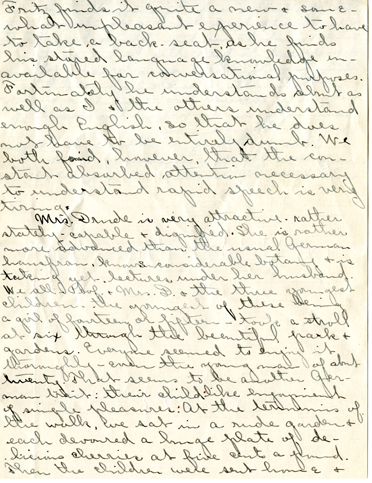 Fritz finds it quite a new & some-
what unpleasant experience to have
to take a back seat, as he finds
his stored language knowledge un-
available for conversational purposes.
Fortunately he understands almost as
well as I & the others understand
enough English, so that he does
not have to be entirely dumb. We
both find, however, that the con-
stant absorbed attention necessary
to understand rapid speech is very
tiring.
Mrs. Drude is very attractive, rather
stately, capable & dignified. She is rather
more advanced than the usual German
hausfrau, knows considerable botany & is
taking lectures under her husband.
We all, Mrs. D. & the three youngest
children - the youngest of these being
a girl of fourteen or fifteen - took a stroll
at six through the beautiful park &
gardens. Everyone seemed to enjoy it
thoroughly - even the young man of about
twenty. That seems to be another Ger-
man trait: their childlike enjoyment
of simple pleasures. At the terminus of
the walk, we sat in a rude garden &
each devoured a huge plate of de-
licious cherries at five cents a pound.
Then the children were sent home &